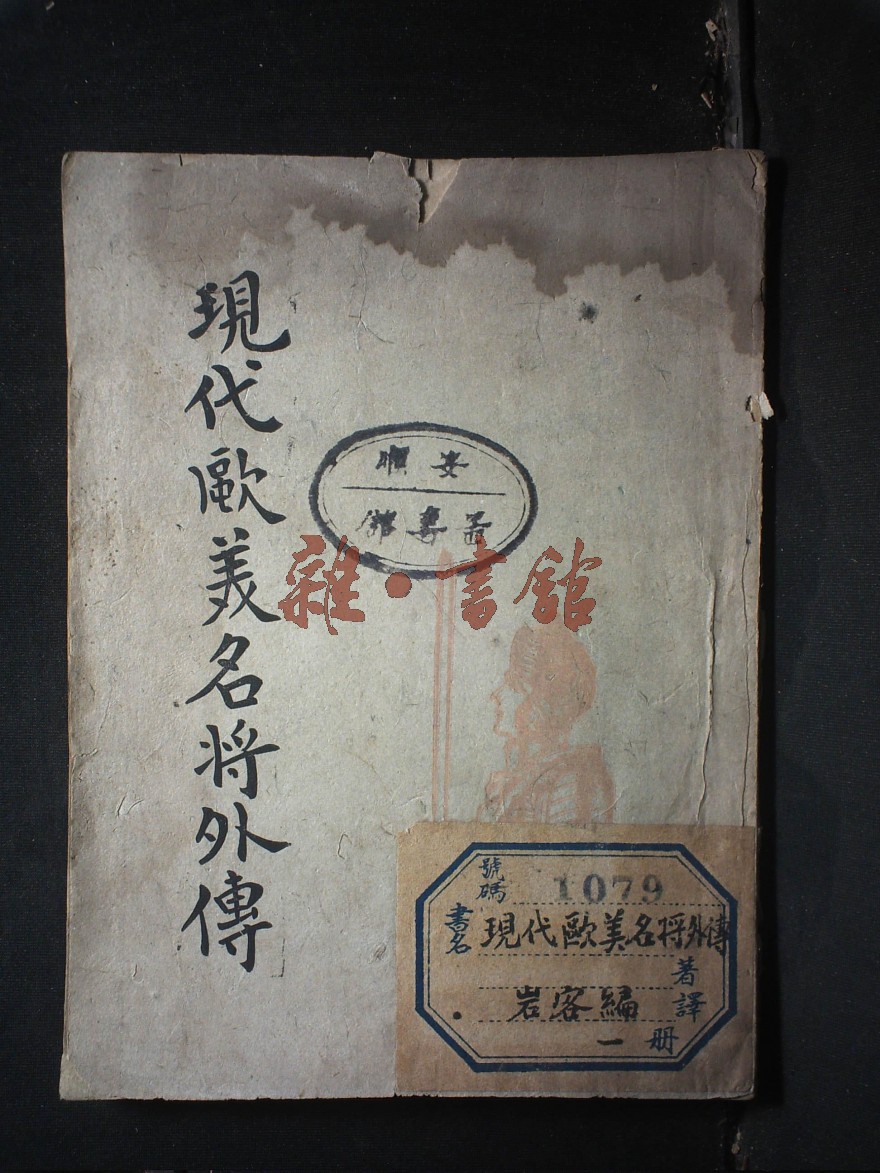 現代歐美名将外傳
安順
雜·書舘
號碼 1079
書名 現代歐美名将外傳
著譯 岩客編
一册